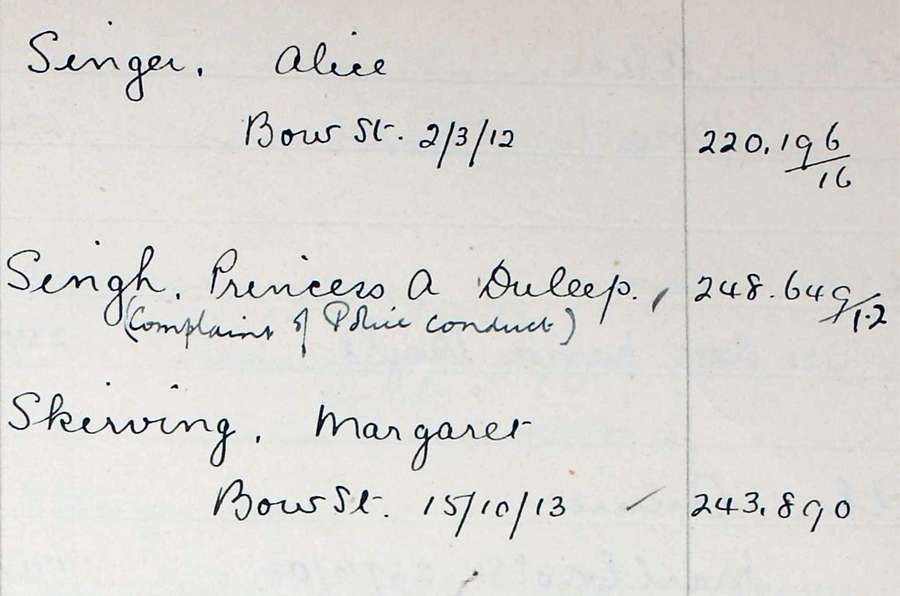 Singer, Alice
Bow St. 2/3/12 220,196/16
Singh, Princess A Duleep. 248.649/1.2
(Complaint of Police conduct)
Skirving, Margaret
Bow St. 15/10/13 243,890